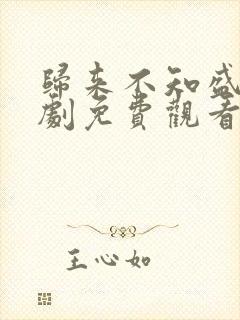 歸來不知盛
劇免費觀看
王心如